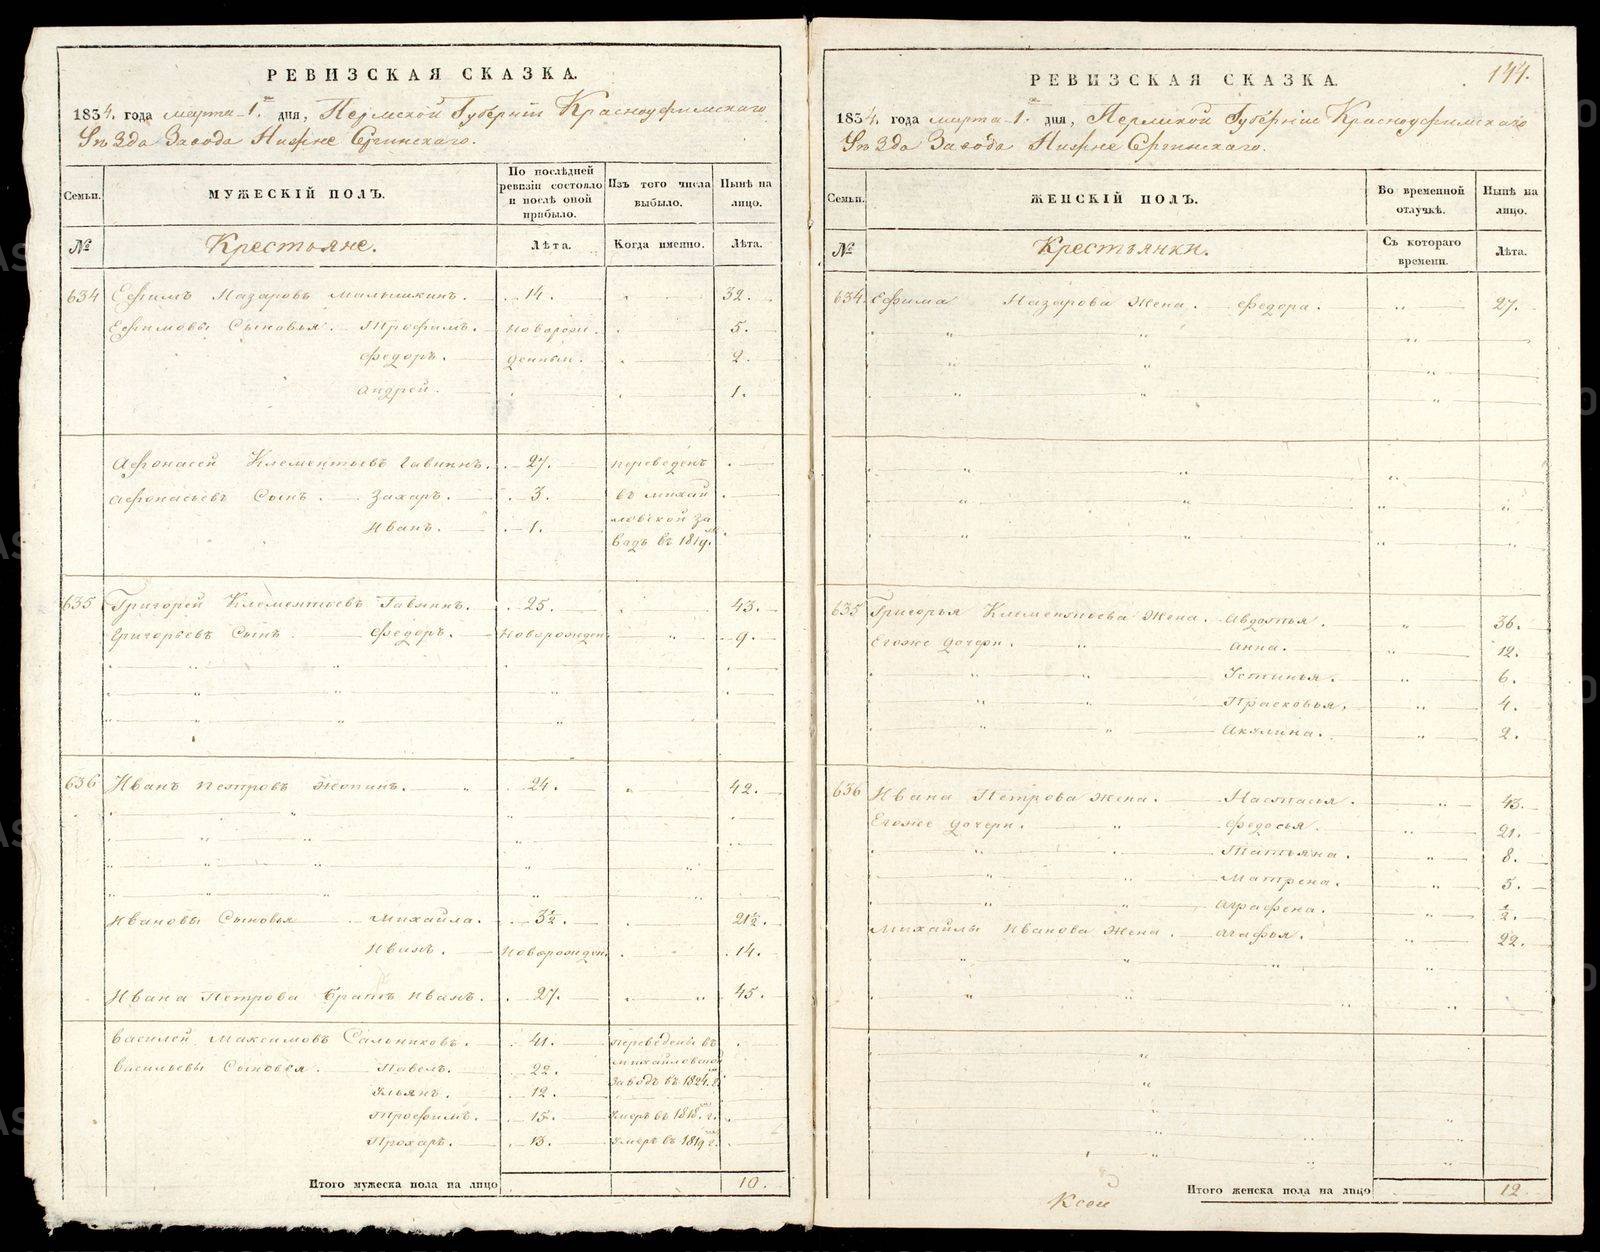 РЕВИЗСКАЯ СКАЗКА.
1834. года марта 1го дня, Пермской Губернiи Красноуфимскаго
Уѣзда Завода Нижне Сергинскаго.
Семьи.
МУЖЕСКIЙ ПОЛЪ.
По послѣдней ревизiи состояло и послѣ оной прибыло.
Изъ того числа выбыло.
Нынѣ на лицо.
№
Крестьяне.
Лѣта.
Когда именно.
Лѣта.
634 Ефимъ Назаровъ Малышкинъ. 14. 32.
Ефимовы Сыновья. Трофимъ. новорож- 5.
Федоръ. денныи. 2.
Андрей. 1.
Афонасей Клементьевъ Гавшинъ. 27. переведенъ
Афонасьевъ Сынъ. Захаръ. 3. въ михай
Иванъ. 1. ловской за
водъ въ 1819.
635 Григорей Клементьевъ Гавшинъ. 25. 43.
Григорьевъ Сынъ. Федоръ. Новорожден. 9.
636 Иванъ Петровъ 24. 42.
Ивановы Сыновья Михайла. 3½. 21½.
Иванъ. Новорожден. 14.
Ивана Петрова братъ Иванъ. 27. 45.
Василей Максимовъ Сальниковъ. 41. переведены въ
Васильевы Сыновья. Павелъ. 22. михайловской
Ульянъ. 12. заводъ въ 1824.
Трофимъ. 15. умеръ въ 1818. г.
Прохаръ. 13. умеръ въ 1819 г.
Итого мужеска пола на лицо 10.
РЕВИЗСКАЯ СКАЗКА.
144.
1834. года марта 1го дня, Пермской Губернiи Красноуфимскаго
Уѣзда Завода Нижне Сергинскаго.
Семьи.
ЖЕНСКIЙ ПОЛЪ.
Во временной отлучкѣ.
Нынѣ на лицо.
№
Крестьянки.
Съ котораго времени.
Лѣта.
634. Ефима Назарова Жена. Федора. 27.
635 Григорья Клементьева Жена. Авдотья. 36.
Егоже дочери. Анна. 12.
Устинья. 6.
Прасковья. 4.
Акулина. 2.
636 Ивана Петрова Жена. Настасья. 43.
Егоже дочери. Федосья. 21.
Татьяна. 8.
Матрена. 5.
Аграфена. ½.
Михайлы Иванова Жена. Агафья. 22.
Итого женска пола на лицо 12.